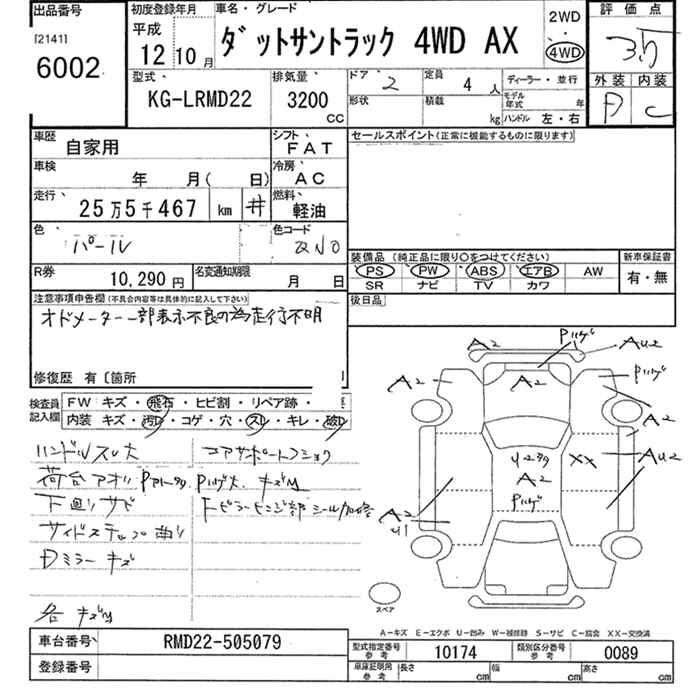 出品番号
[2141]
6002
初度登録年月
平成
12 10 月
車名・グレード
ダットサントラック 4WD AX
2WD
・
4WD
評価点
3.5
外装 内装
D C
型式
KG-LRMD22
排気量
3200
CC
ドア 2
定員 4 人
形状
積載 kg
ディーラー・並行
モデル年式 年
ハンドル 左・右
車歴 自家用
シフト FAT
車検 年 月( 日)
冷房 AC
走行 25万5千467 km #
燃料 軽油
色 パール
色コード
R券 10,290 円
名変通知期限 月 日
セールスポイント(正常に機能するものに限ります)
装備品 (純正品に限り○をつけてください)
PS PW ABS エアB AW
SR ナビ TV カワ
新車保証書
有・無
後日品
注意事項申告欄(不具合内容等は具体的に記入して下さい)
オドメーター一部表示不良の為走行不明
修復歴 有 〔箇所
検査員記入欄
FW キズ・飛石・ヒビ割・リペア跡・
内装 キズ・汚レ・コゲ・穴・スレ・キレ・破レ
ハンドルスレ大
コアサポートフショク
荷台アオリ Pハゲ大、キズ凹
下廻りサビ
サイドステップ曲り
Dミラーキズ
各キズ凹
A2
Pハゲ
AU2
A2
A2
A2
Pハゲ
A2
AU2
XX
A2
Pハゲ
A2
U1
スペア
A-キズ E-エクボ U-凹み W-補修跡 S-サビ C-腐食 XX-交換済
車台番号 RMD22-505079
登録番号
型式指定番号 参考 10174
類別区分番号 参考 0089
車庫証明用 参考 長さ cm 幅 cm 高さ cm